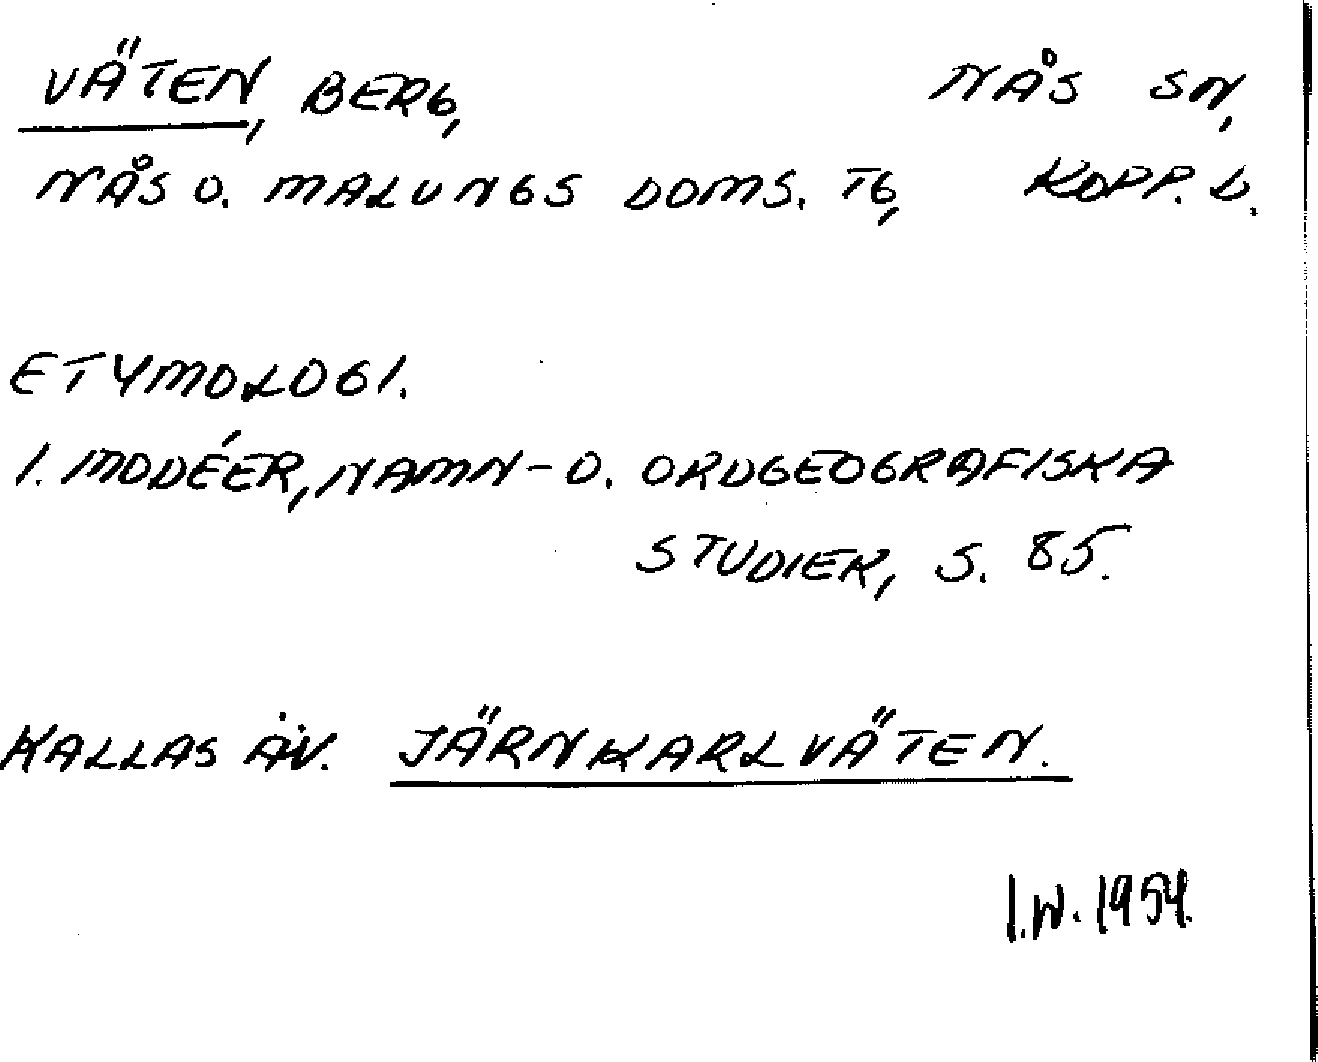 VÄTEN, BERG, NÅS SN,
NÅS O. MALUNGS DOMS. TG, KOPP. L.
ETYMOLOGI.
I. MODÉER, NAMN- O. ORDGEOGRAFISKA
STUDIER, S. 85.
KALLAS ÄV. JÄRNKARLVÄTEN.
I.W. 1954.